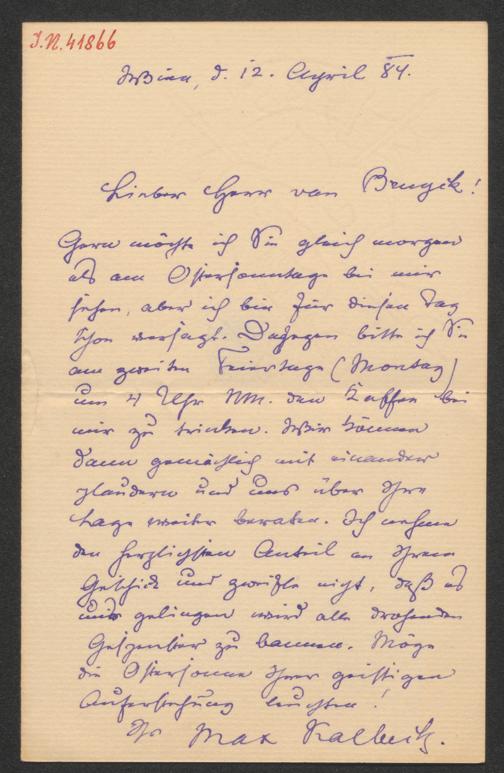 J.N. 41866
Wien, d. 12. April 84.
Lieber Herr van Bruyck!
Gern möchte ich Sie gleich morgen
als am Ostersonntage bei mir
sehen, aber ich bin für diesen Tag
schon versagt. Dagegen bitte ich Sie
am zweiten Feiertage (Montag)
um 4 Uhr NM. den Kaffee bei
mir zu trinken. Wir können
dann gemächlich mit einander
plaudern und uns über Ihre
Lage weiter beraten. Ich nehme
den herzlichsten Anteil an Ihrem
Geschick und zweifle nicht, daß es
uns gelingen wird alle drohenden
Gespenster zu bannen. Möge
die Ostersonne Ihrer geistigen
Auferstehung leuchten!
Ihr Max Kalbeck.